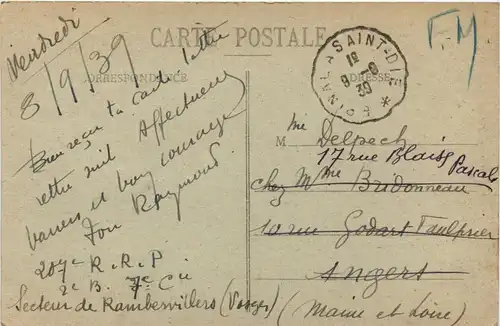 Vendredi
8/9/39
CARTE POSTALE
CORRESPONDANCE
ADRESSE
FM
EPINAL A SAINT-DIE
1E
9-9
39
Bien reçu ta carte lettre
cette nuit Affectueux
baisers et bon courage
Ton Raymond.
207e R.R.P
2e B. 7e Cie
Secteur de Rambervillers (Vosges)
M me Delpech
17 rue Blaise Pascal
chez Mme Bridonneau
10 rue Godart Faultrier
Angers
(Maine et Loire)